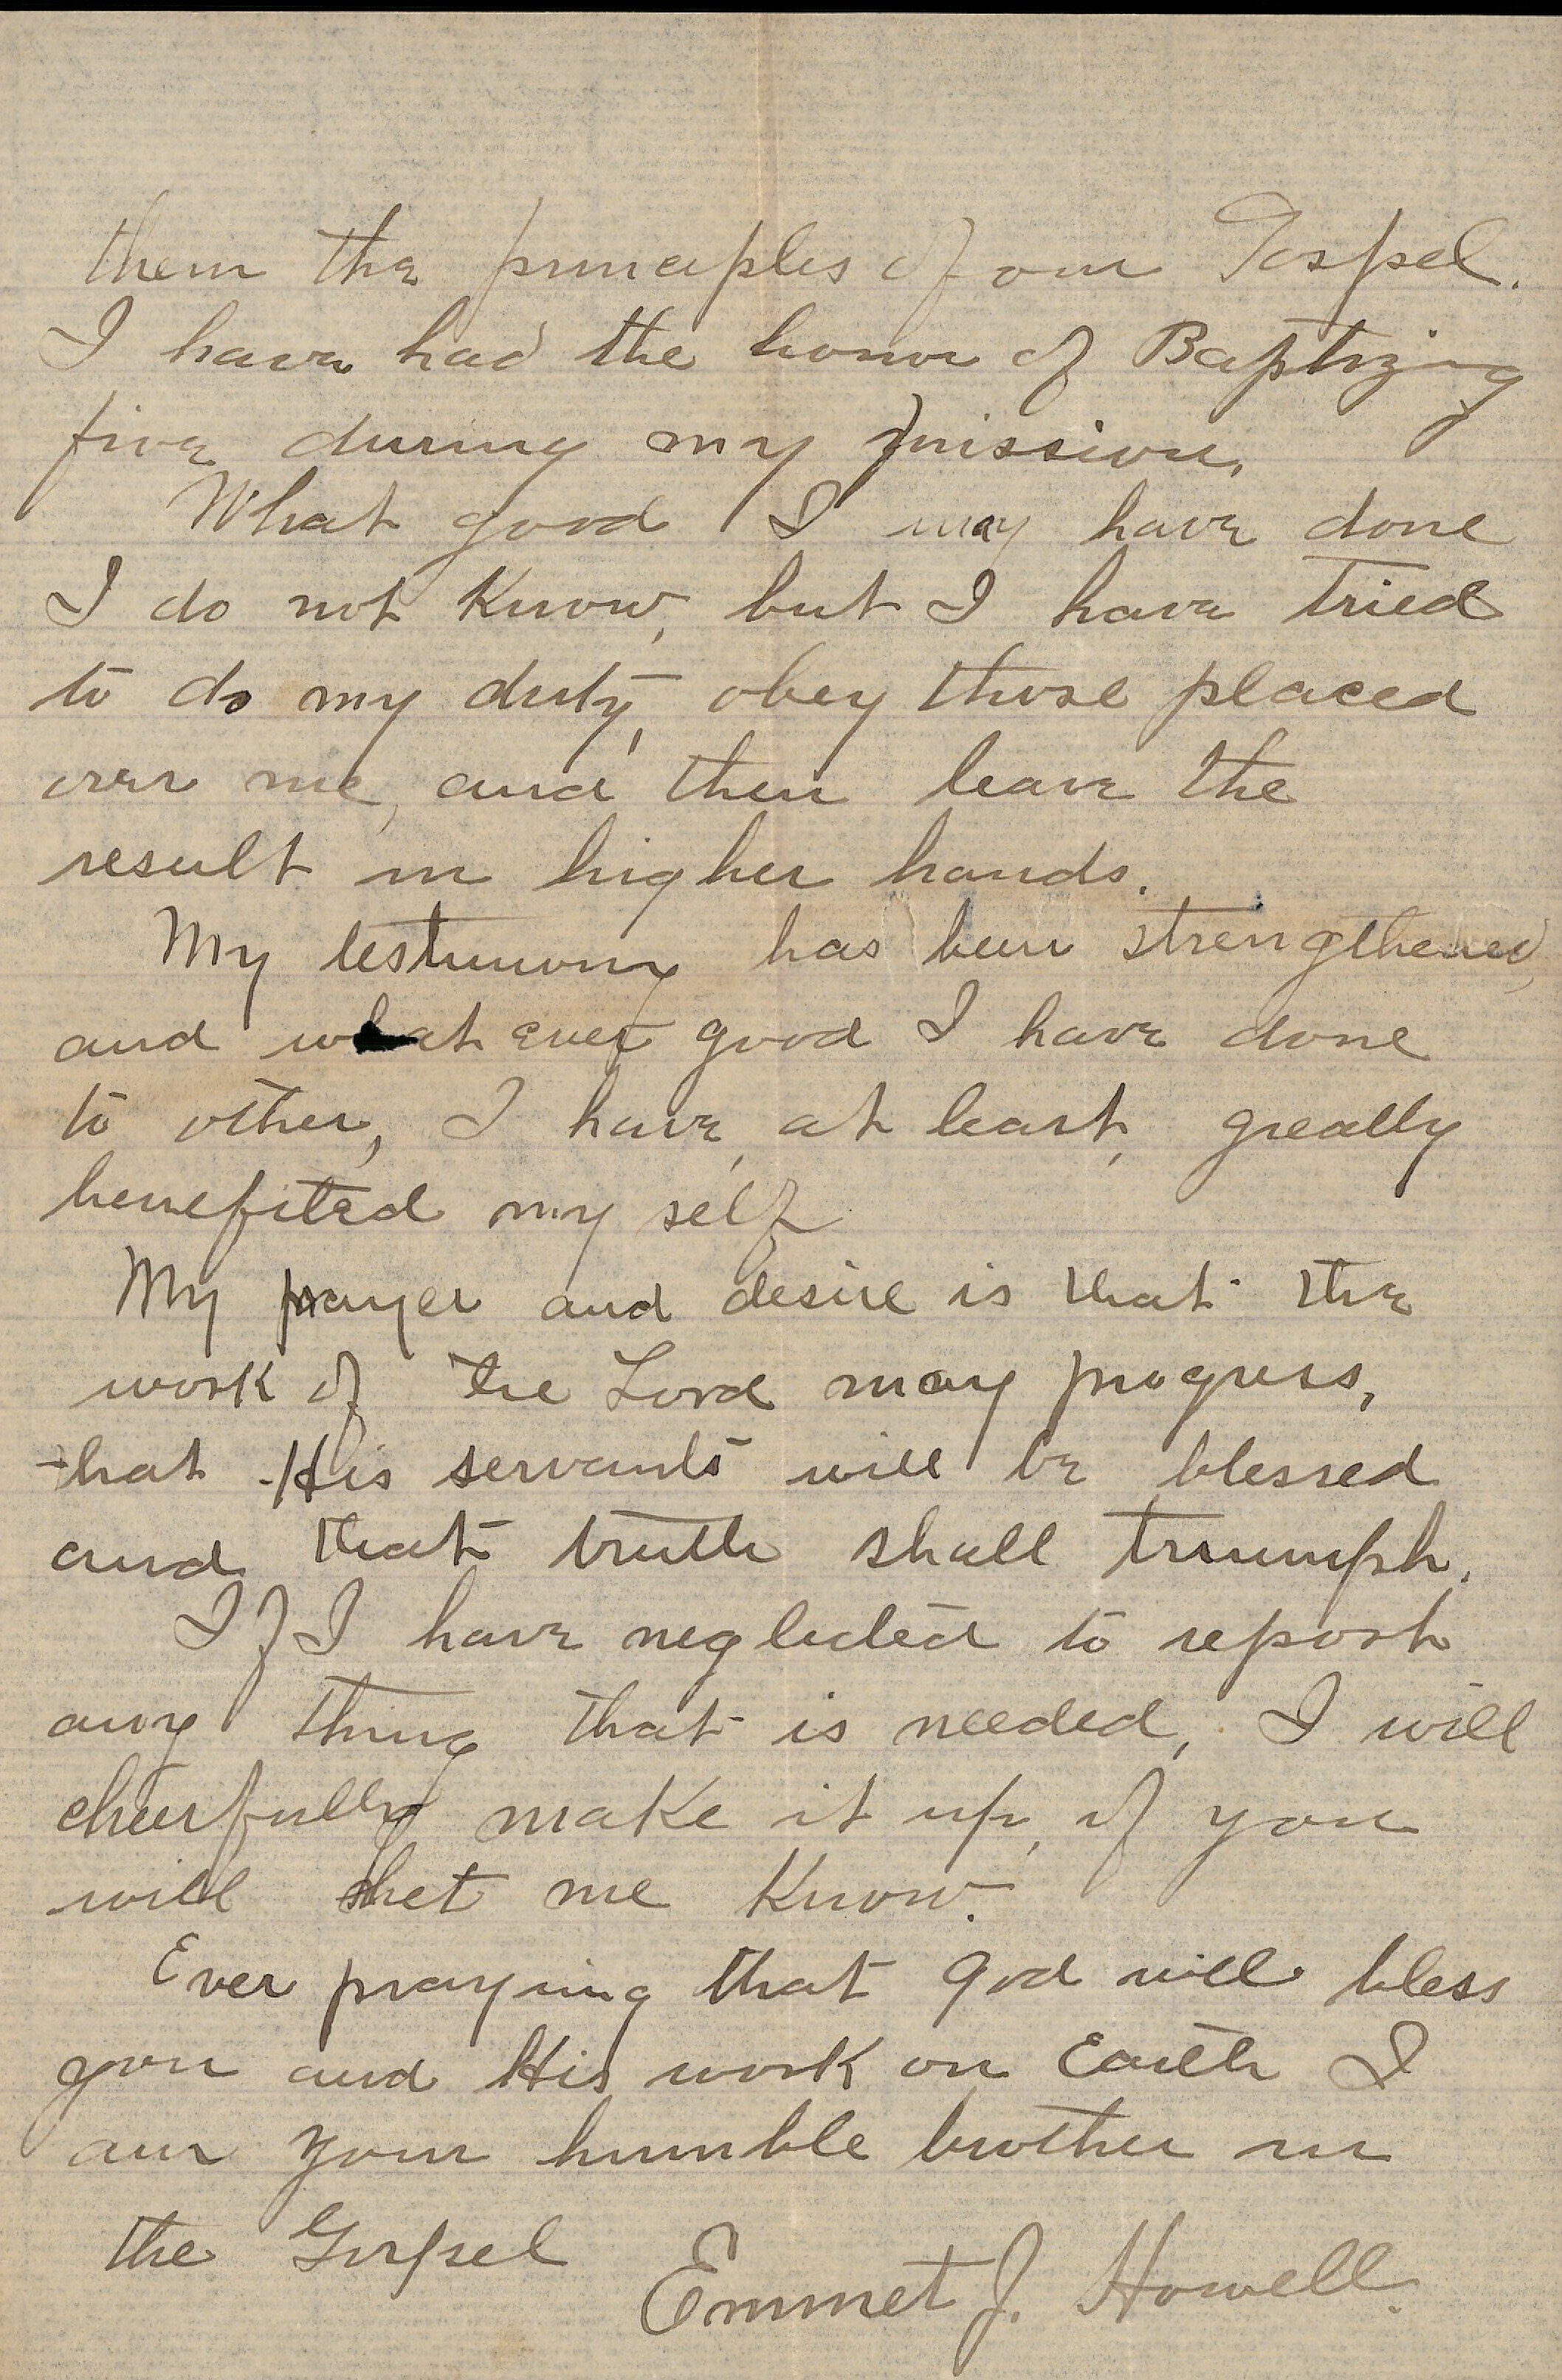 them the principles of our Gospel.
I have had the honor of Baptizing
five during my mission.
What good I may have done
I do not know, but I have tried
to do my duty, obey those placed
over me, and then leave the
result in higher hands.
My testimony has been strengthened,
and what ever good I have done
to other, I have, at least, greatly
benefited my self
My prayer and desire is that the
work of the Lord may progress,
that His servants will be blessed
and that truth shall triumph.
If I have neglected to report
any thing that is needed, I will
cheerfully make it up, if you
will let me know.
Ever praying that God will bless
you and His work on Earth I
am your humble brother in
the Gospel
Emmet J. Howell.